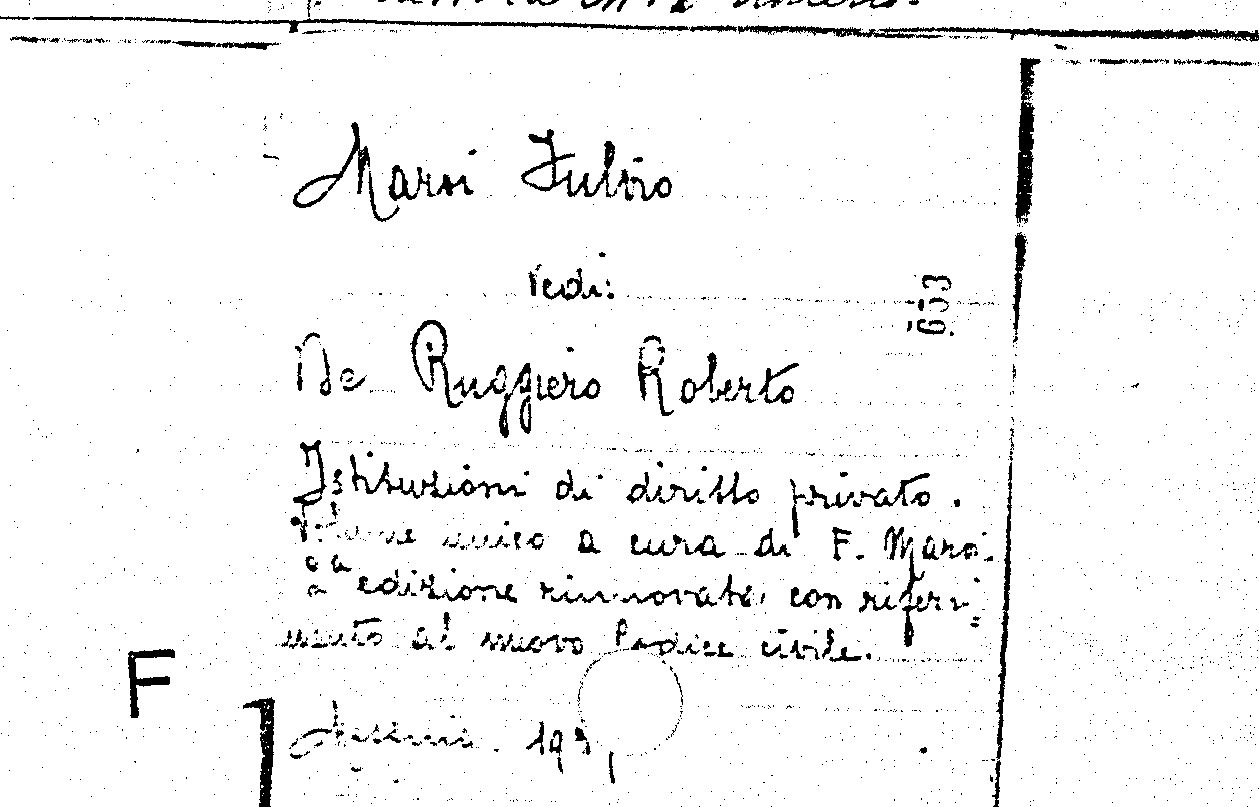 Maroi Fulvio
Vedi:
633
De Ruggiero Roberto
Istituzioni di diritto privato.
Volume unico a cura di F. Maroi.
edizione rinnovata con riferi-
mento al nuovo Codice civile.
F
Messina. 193